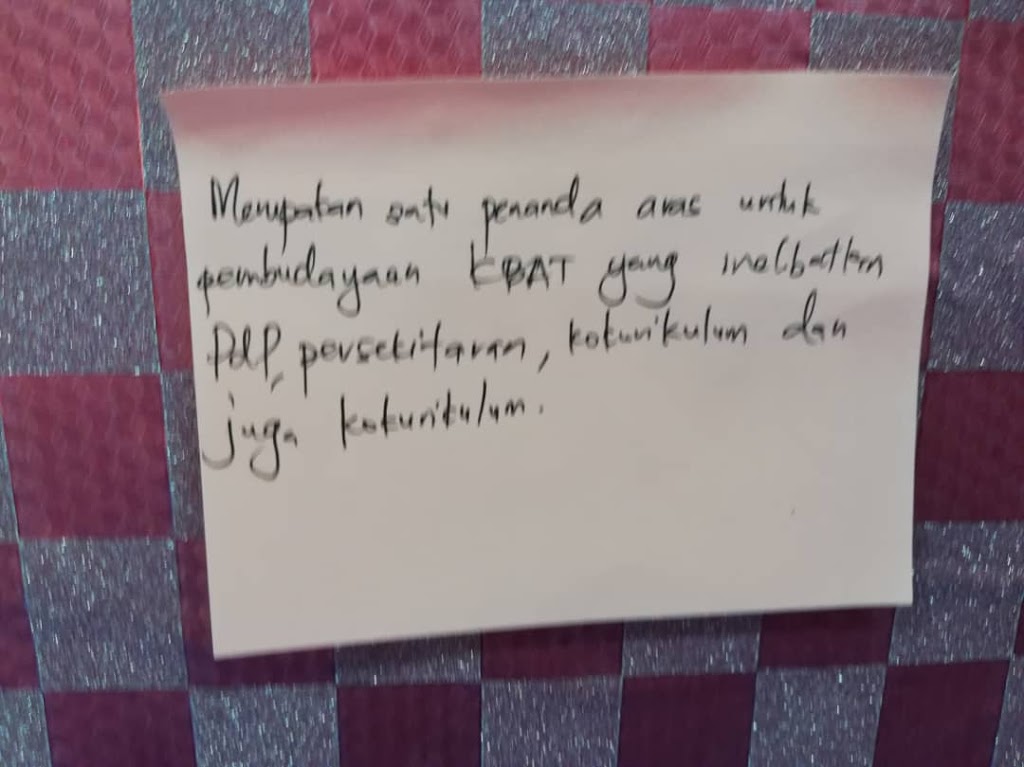 Merupakan satu penanda aras untuk
pembudayaan KBAT yang melbatkan
PdP, persekitaran, kokurikulum dan
juga kokurikulum.